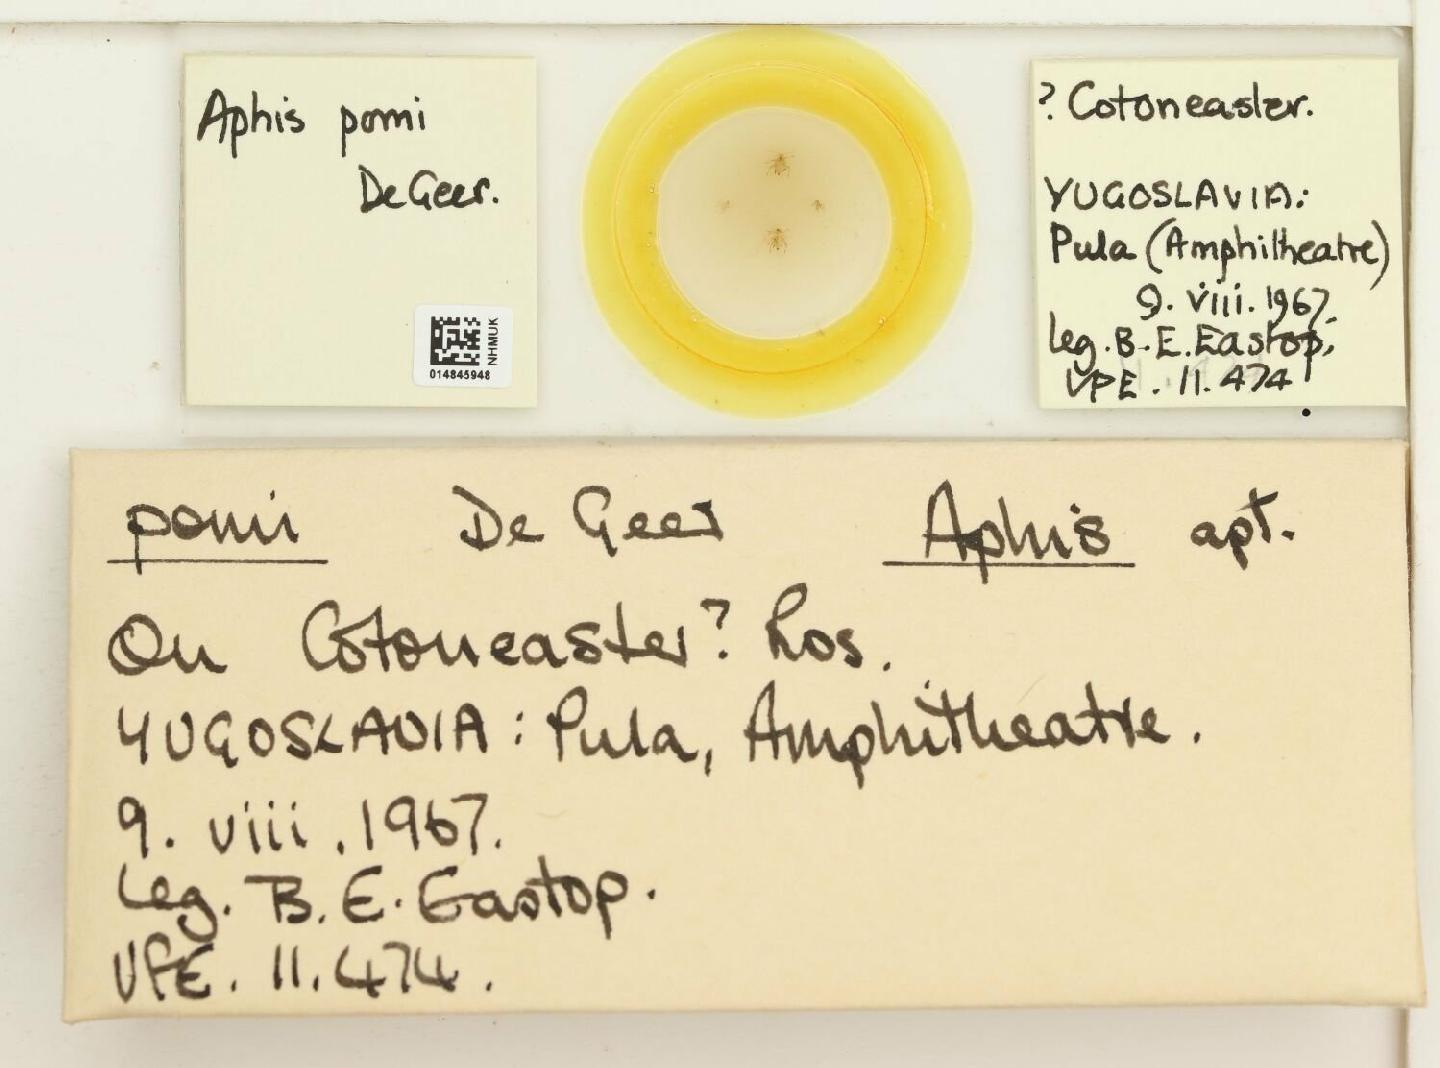 Aphis pomi
De Geer.
NHMUK
014845948
? Cotoneaster.
YUGOSLAVIA:
Pula (Amphitheatre)
9. viii. 1967.
leg. B. E. Eastop,
VPE. 11. 474
pomi De Geer Aphis apt.
On Cotoneaster? Ros.
YUGOSLAVIA: Pula, Amphitheatre.
9. viii. 1967.
Leg. B. E. Eastop.
VPE. 11. 474.